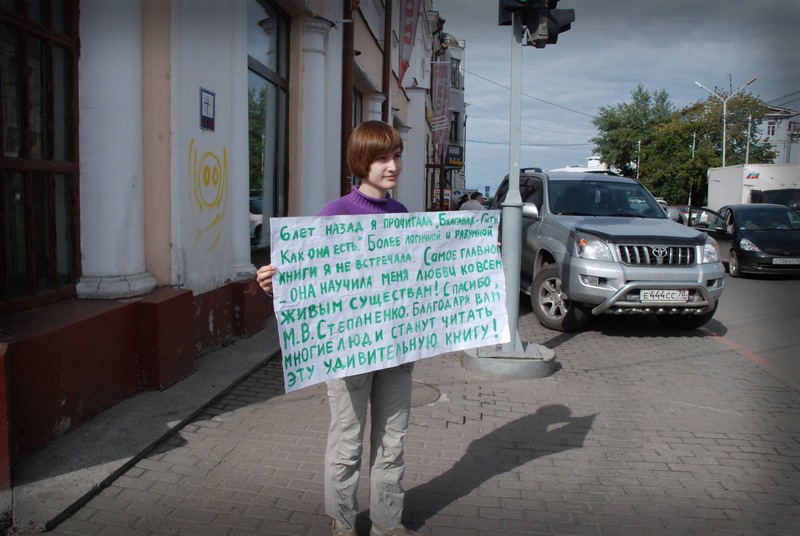 6 лет назад я прочитала „Бхагавад-Гиту
Как она есть". Более логичной и разумной
книги я не встречала. Самое главное
- она научила меня любви ко всем
живым существам! Спасибо
М.В. Степаненко. Благодаря вам
многие люди станут читать
эту удивительную книгу!
Е444СС 70